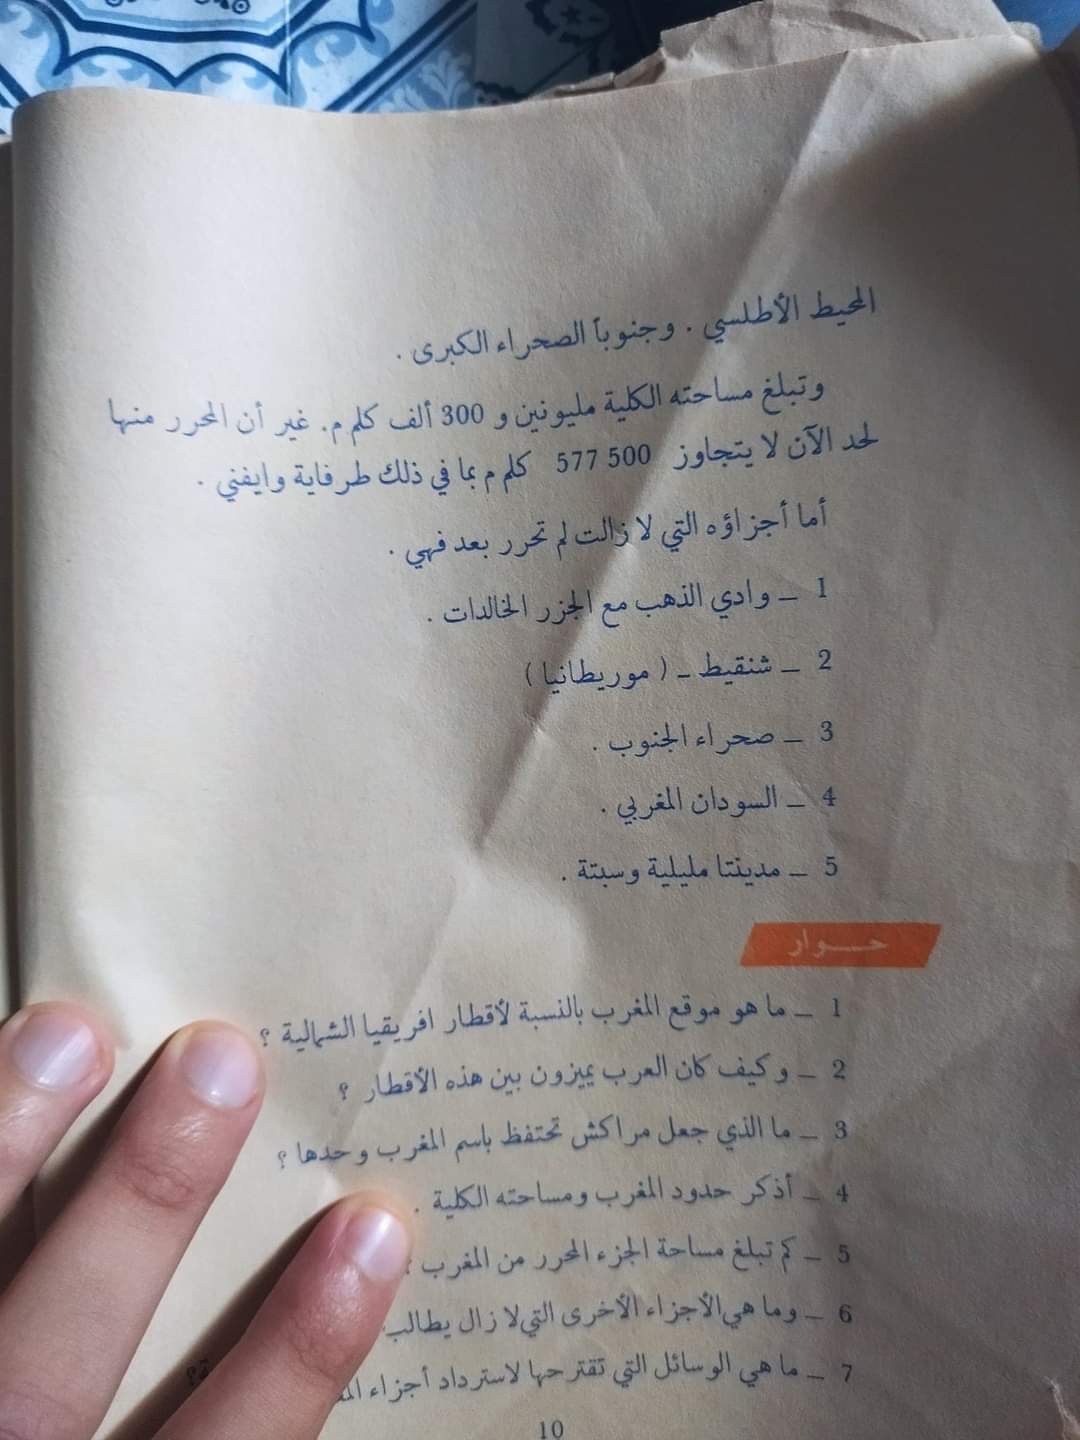 المحيط الأطلسي . وجنوباً الصحراء الكبرى .
وتبلغ مساحته الكلية مليونين و 300 ألف كلم م. غير أن المحرر منها
لحد الآن لا يتجاوز 500 577 كلم م بما في ذلك طرفاية وايفني .
أما أجزاؤه التي لا زالت لم تحرر بعد فهي .
1 ــ وادي الذهب مع الجزر الخالدات .
2 ــ شنقيط ــ ( موريطانيا )
3 ــ صحراء الجنوب .
4 ــ السودان المغربي .
5 ــ مدينتا مليلية وسبتة .
حـــوار
1 ــ ما هو موقع المغرب بالنسبة لأقطار افريقيا الشمالية ؟
2 ــ وكيف كان العرب يميزون بين هذه الأقطار ؟
3 ــ ما الذي جعل مراكش تحتفظ باسم المغرب وحدها ؟
4 ــ أذكر حدود المغرب ومساحته الكلية .
5 ــ كم تبلغ مساحة الجزء المحرر من المغرب
6 ــ وما هي الأجزاء الأخرى التي لا زال يطالب
7 ــ ما هي الوسائل التي تقترحها لاسترداد أجزاء
10